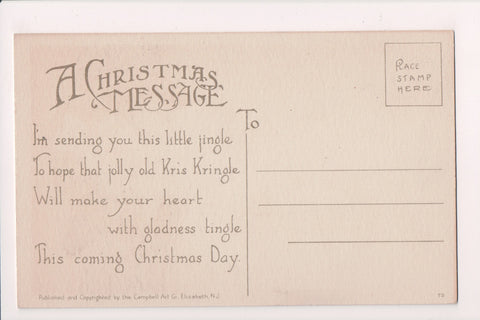 A Christmas Message
PLACE
STAMP
HERE
To
I'm sending you this little jingle
To hope that jolly old Kris Kringle
Will make your heart
with gladness tingle
This coming Christmas Day.
Published and Copyrighted by the Campbell Art Co. Elizabeth, N.J.